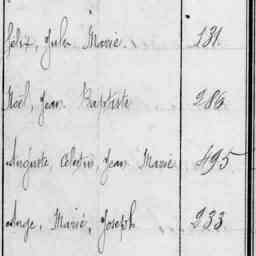 Félix, Jules Marie. 131.
Noël, Jean Baptiste 286.
Auguste, Célestin, Jean Marie 495
Ange, Marie, Joseph 233.